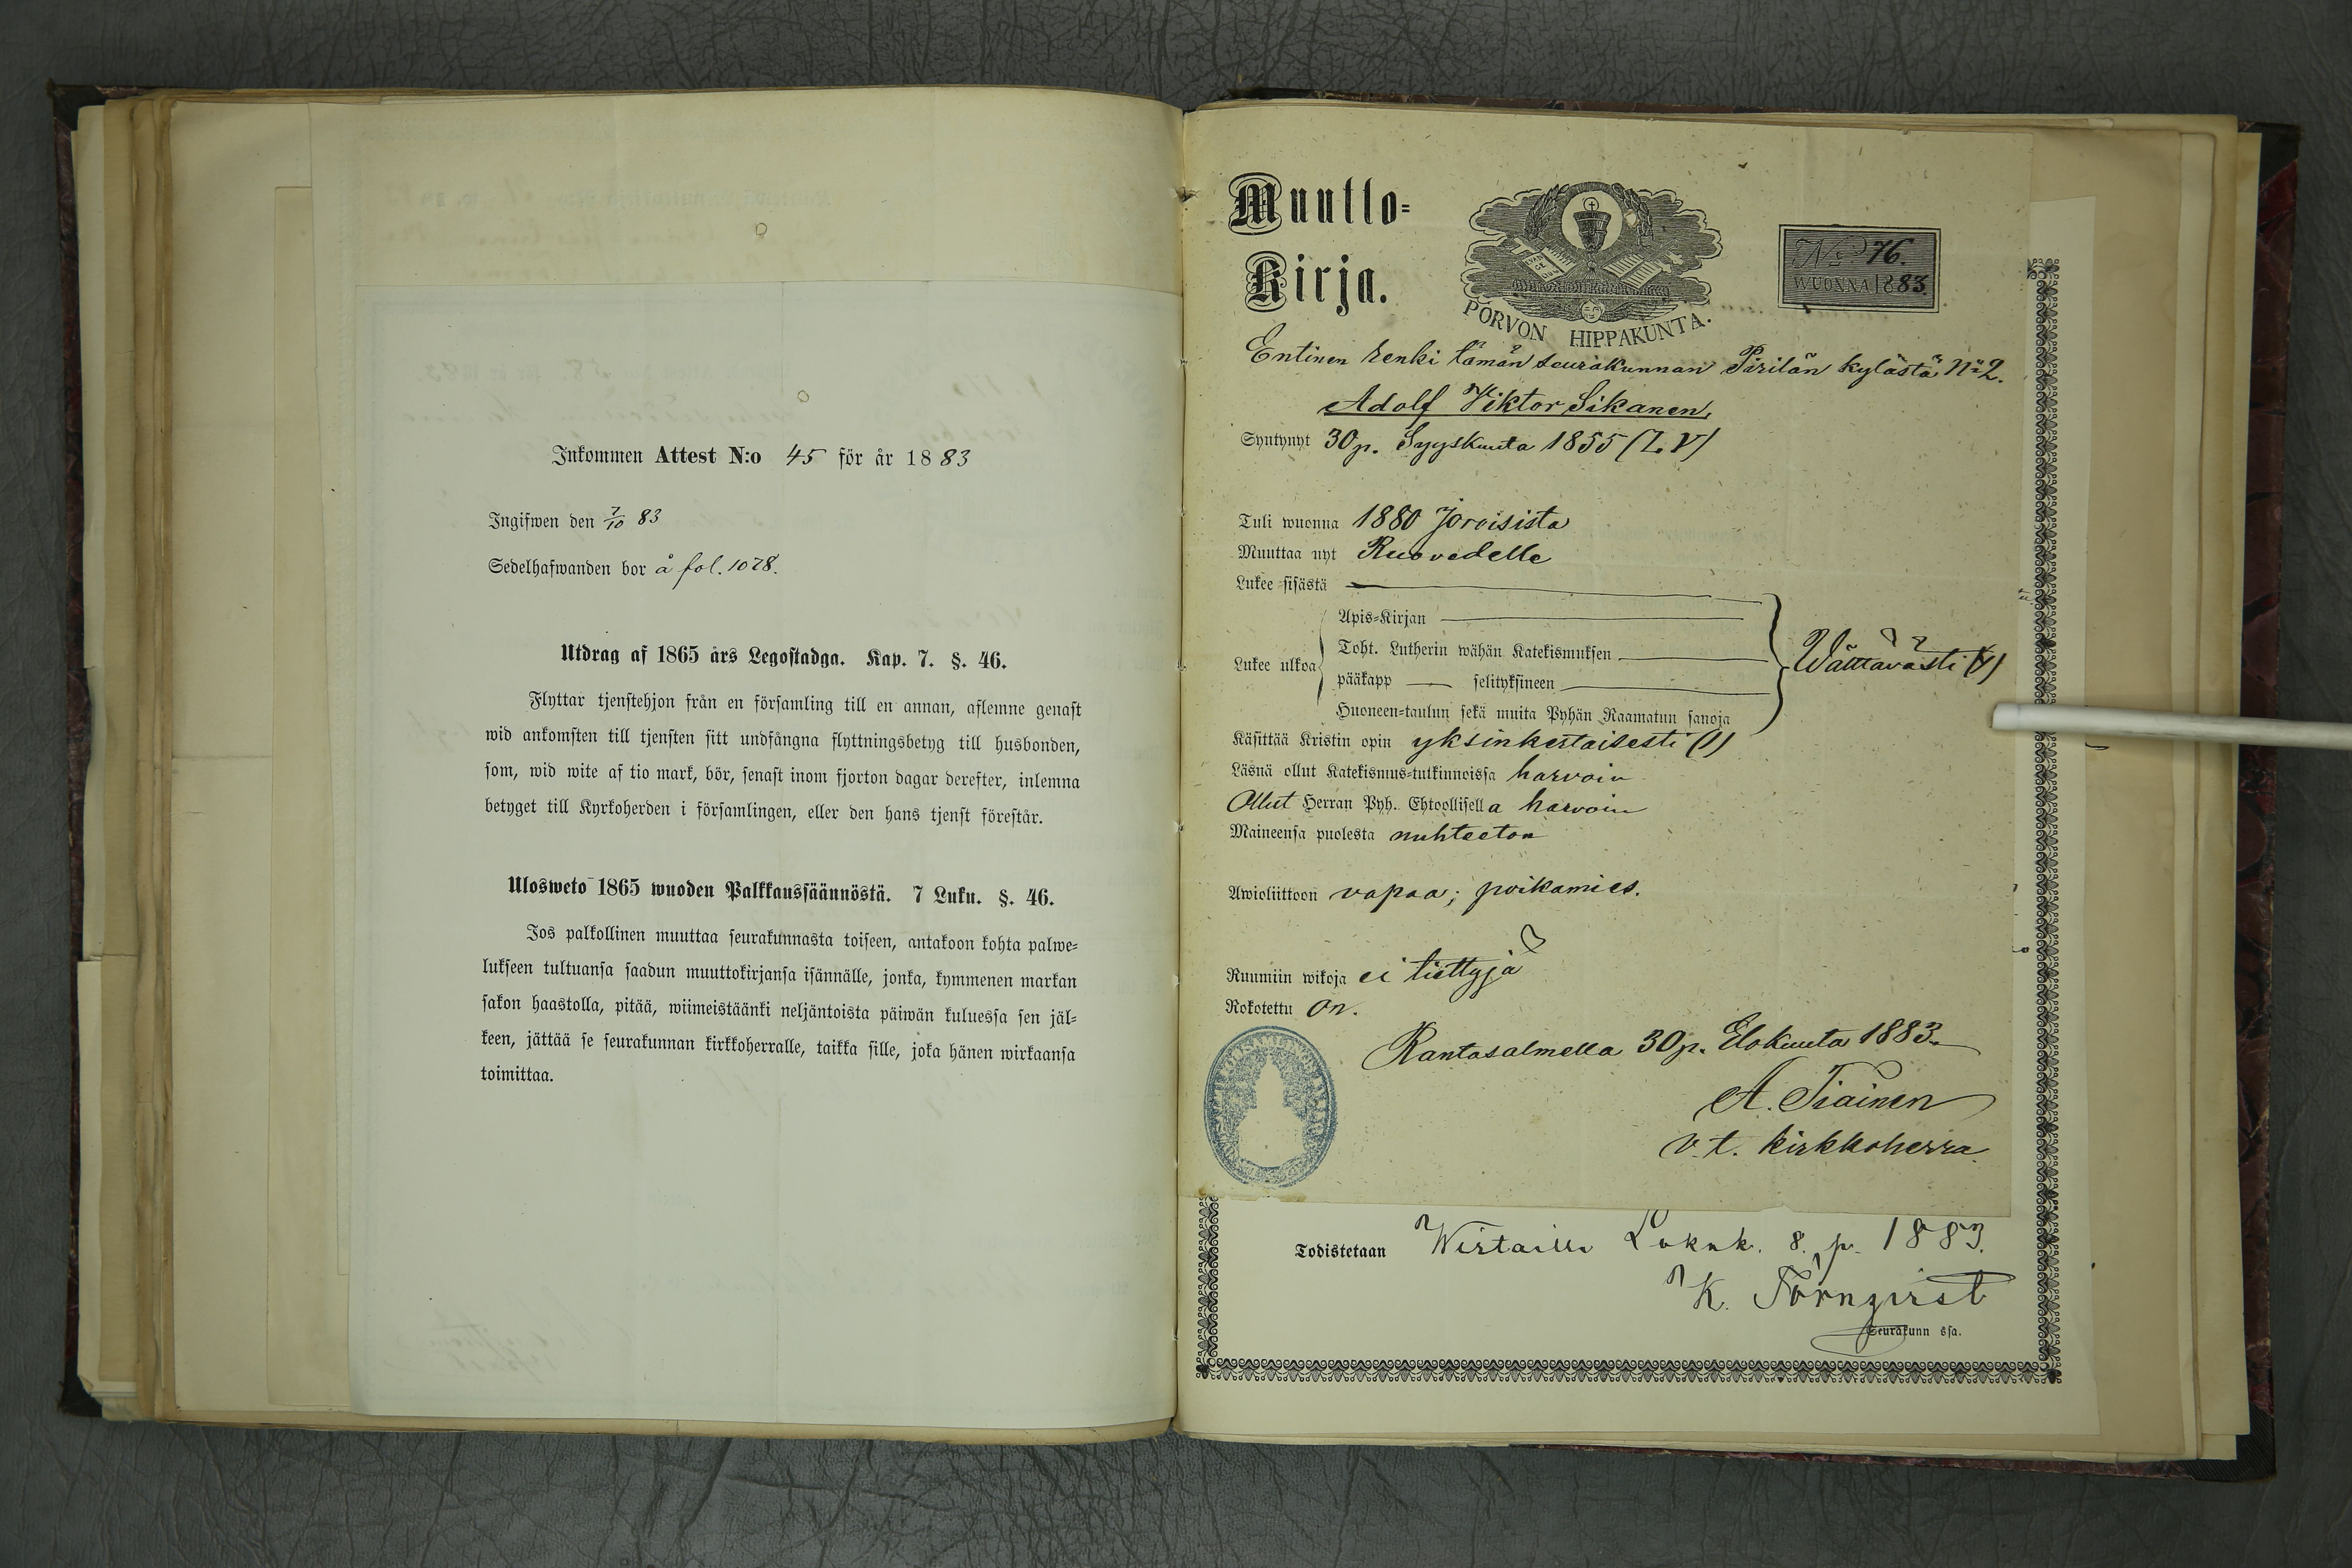 Inkommen Attest N:o 45 för år 1883
Ingifwen den 7/10 83
Sedelhafwanden bor å fol. 1078.
Utdrag af 1865 års Legostadga. Kap. 7. §. 46.
Flyttar tjenstehjon från en församling till en annan, aflemne genast
wid ankomsten till tjensten sitt undfångna flyttningsbetyg till husbonden,
som, wid wite af tio mark, bör, senast inom fjorton dagar derefter, inlemna
betyget till Kyrkoherden i församlingen, eller den hans tjenst förestår.
Ulosweto 1865 wuoden Palkkaussäännöstä. 7 Luku. §. 46.
Jos palkollinen muuttaa seurakunnasta toiseen, antakoon kohta palwe-
lukseen tultuansa saadun muuttokirjansa isännälle, jonka, kymmenen markan
sakon haastolla, pitää, wiimeistäänki neljäntoista päiwän kuluessa sen jäl-
keen, jättää se seurakunnan kirkkoherralle, taikka sille, joka hänen wirkaansa
toimittaa.
Muutto-
Kirja.
PORVON HIPPAKUNTA.
No 76.
WUONNA 1883.
Entinen renki tämän seurakunnan Pirilän kylästä No 2.
Adolf Viktor Sikanen,
Syntynyt 30 p. Syyskuuta 1855 (L.V)
Tuli wuonna 1880 Joroisista
Muuttaa nyt Ruovedelle
Lukee sisästä
Apis-Kirjan
Toht. Lutherin wähän Katekismuksen
Lukee ulkoa
pääkapp selityksineen
Huoneen-taulun sekä muita Pyhän Raamatun sanoja
Wälttävästi (/)
Käsittää Kristin opin yksinkertaisesti (/)
Läsnä ollut Katekismus-tutkinnoissa harvoin
Ollut Herran Pyh. Ehtoollisella harvoin
Maineensa puolesta nuhteeton
Awioliittoon vapaa; poikamies.
Ruumiin wikoja ei tiettyjä
Rokotettu on.
Rantasalmella 30 p. Elokuuta 1883.
A. Tiainen
v. t. kirkkoherra.
Todistetaan Wirtailla Lokak. 8. p. 1883.
K. Törnqvist
Seurakunn ssa.